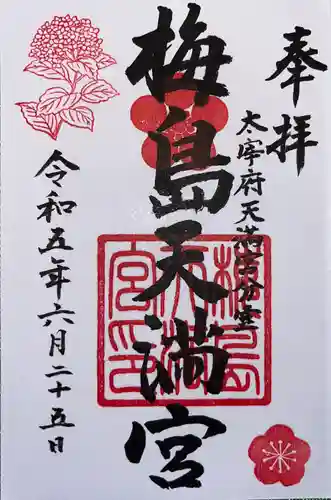 奉拝
太宰府天満宮分霊
梅島天満宮
令和五年六月二十五日
梅島天満宮印